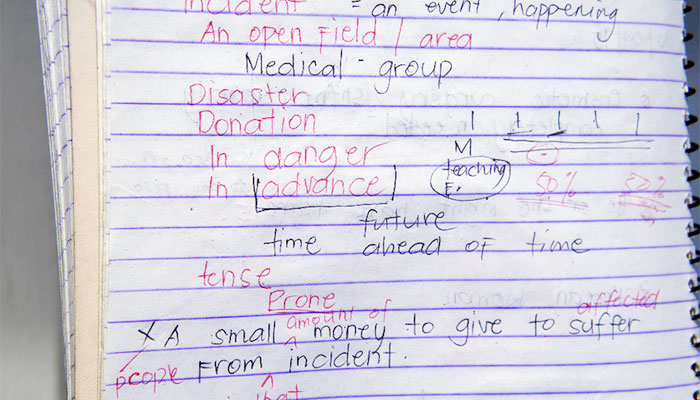 Incident = an event, happening
An open Field / area
Medical - group
Disaster
Donation 1 1 1 1 1
In danger M
In advance teaching F. 50% 50%
future
time ahead of time
tense
Prone
amount of affected
X A small money to give to suffer
people From incident.
that